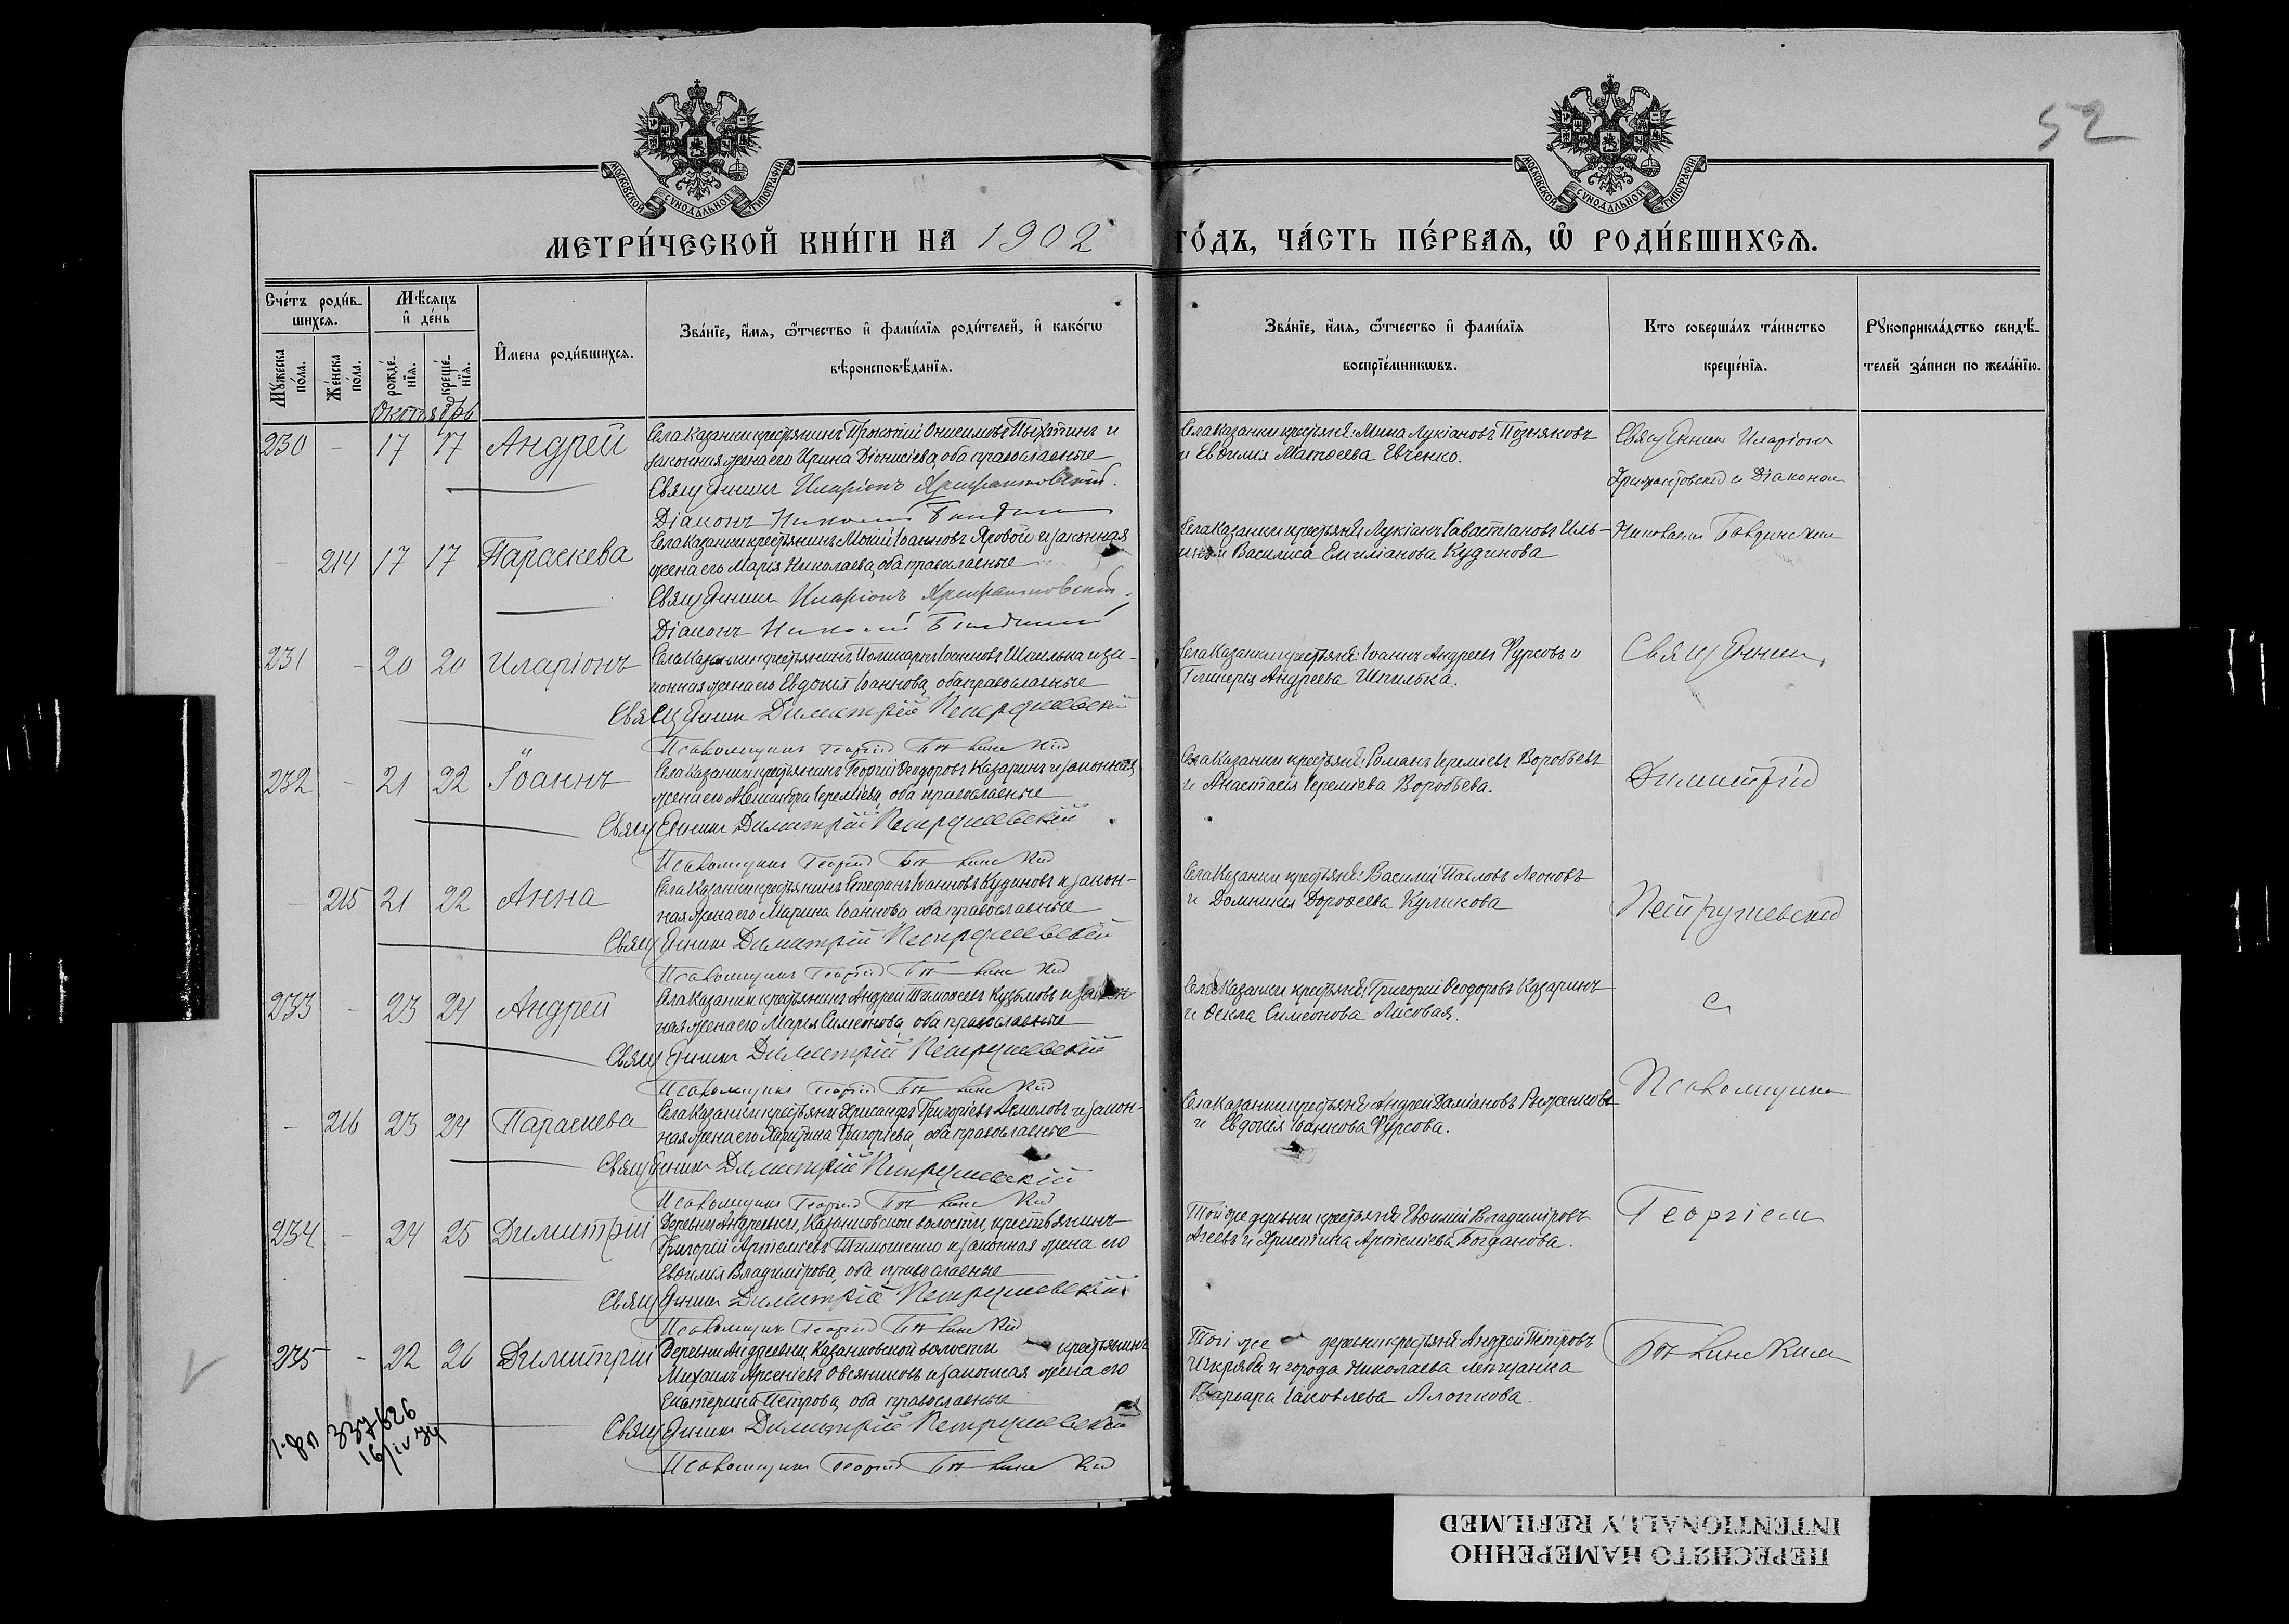 52
МОСКОВСКОЙ СѴНОДАЛЬНОЙ ТИПОГРАФІИ
МОСКОВСКОЙ СѴНОДАЛЬНОЙ ТИПОГРАФІИ
МЕТРИ́ЧЕСКОЙ КНИ́ГИ НА 1902 ГО́ДЪ, ЧА́СТЬ ПЕ́РВАѦ, Ѡ РОДИ́ВШИХСѦ.
Сче́тъ роди́в-
шихсѧ.
Мꙋ́жеска
по́ла.
Же́нска
по́ла.
Мѣ́сѧцъ
и҆ де́нь
рожде́-
нїѧ.
креще́-
нїѧ.
Октября
И҆мена роди́вшихсѧ.
Зва́нїе, и҆́мѧ, ѻ҆́тчество и҆ фами́лїѧ роди́телей, и҆ како́гѡ
вѣроисповѣ́данїѧ.
Зва́нїе, и҆́мѧ, ѻ҆́тчество и҆ фами́лїѧ
воспрїе́мникѡвъ.
Кто соверша́лъ та́инство
креще́нїѧ.
Рꙋкоприкла́дство свидѣ́-
телей за́писи по жела́нїю.
230 - 17 17 Андрей
Села Казанки крестьянинъ Прокопій Онисимовъ Пыхтинъ и
законная жена его Ирина Діонисіева, оба православные
Священникъ Иларіонъ
Діаконъ Николай
Села Казанки крестьяне: Мина Лукіановъ Позняковъ
и Евѳимія Матѳеева Евченко.
Священник Иларіон
и Діаконом
- 214 17 17 Параскева
Села Казанки крестьянинъ Мокій Іоанновъ Яровой и законная
жена его Марія Николаева, оба православные
Священникъ Иларіонъ
Діаконъ Николай
Села Казанки крестьяне: Лукіанъ Савастіановъ Иль-
инъ и Василиса Емиліанова Кудинова
Николаем
231 - 20 20 Иларіонъ
Села Казанки крестьянинъ Поликарпъ Іоанновъ Шпилька и за-
конная жена его Евдокія Іоаннова, оба православные
Священникъ Димитрій Петрушевскій
Псаломщикъ Георгій
Села Казанки крестьяне: Іоаннъ Андреевъ Фурсовъ и
Гликерія Андреева Шпилька.
Священник
232 - 21 22 Іоаннъ
Села Казанки крестьянинъ Георгій Ѳеодоровъ Казаринъ и законная
жена его Александра Іереміева, оба православные
Священникъ Димитрій Петрушевскій
Псаломщикъ Георгій
Села Казанки крестьяне: Романъ Іереміевъ Воробьевъ
и Анастасія Іереміева Воробьева.
Димитрій
- 215 21 22 Анна
Села Казанки крестьянинъ Стефанъ Іоанновъ Кудиновъ и закон-
ная жена его Марина Іоаннова оба православные
Священникъ Димитрій Петрушевскій
Псаломщикъ Георгій
Села Казанки крестьяне: Василій Павловъ Леоновъ
и Домникія Дороѳеева Куликова
Петрушевскій
233 - 23 24 Андрей
Села Казанки крестьянинъ Андрей Тимоѳеевъ Кузьмовъ и закон-
ная жена его Марія Симеонова, оба православные
Священникъ Димитрій Петрушевскій
Псаломщикъ Георгій
Села Казанки крестьяне: Григорій Ѳеодоровъ Казаринъ
и Ѳекла Симеонова Лисовая.
с
- 216 23 24 Параскева
Села Казанки крестьянинъ Хрисанфъ Григоріевъ Асмоловъ и закон-
ная жена его Харитина Григоріева, оба православные
Священникъ Димитрій Петрушевскій
Псаломщикъ Георгій
Села Казанки крестьяне: Андрей Даміановъ Рыженковъ
и Евдокія Іоаннова Фурсова.
Псаломщиком
234 - 24 25 Димитрій
Деревни Андреевки, Казанковской волости, крестьянинъ
Григорій Артеміевъ Тимошенко и законная жена его
Евѳимія Владимірова, оба православные
Священникъ Димитрій Петрушевскій
Псаломщикъ Георгій
Той же деревни крестьяне Евѳимій Владиміровъ
Агеевъ и Христина Артеміева Богданова.
Георгіем
235 - 22 26 Димитрій
Деревни Андреевки, Казанковской волости крестьянинъ
Михаилъ Арсеніевъ Овсянниковъ и законная жена его
Екатерина Петрова, оба православные
Священникъ Димитрій Петрушевскій
Псаломщикъ Георгій
Той же деревни крестьяне Андрей Петровъ
Шкряба и города Николаева мещанка
Варвара Іаковлева
337626
16/IV 34
INTENTIONALLY REFILMED
ПЕРЕСНЯТО НАМЕРЕННО